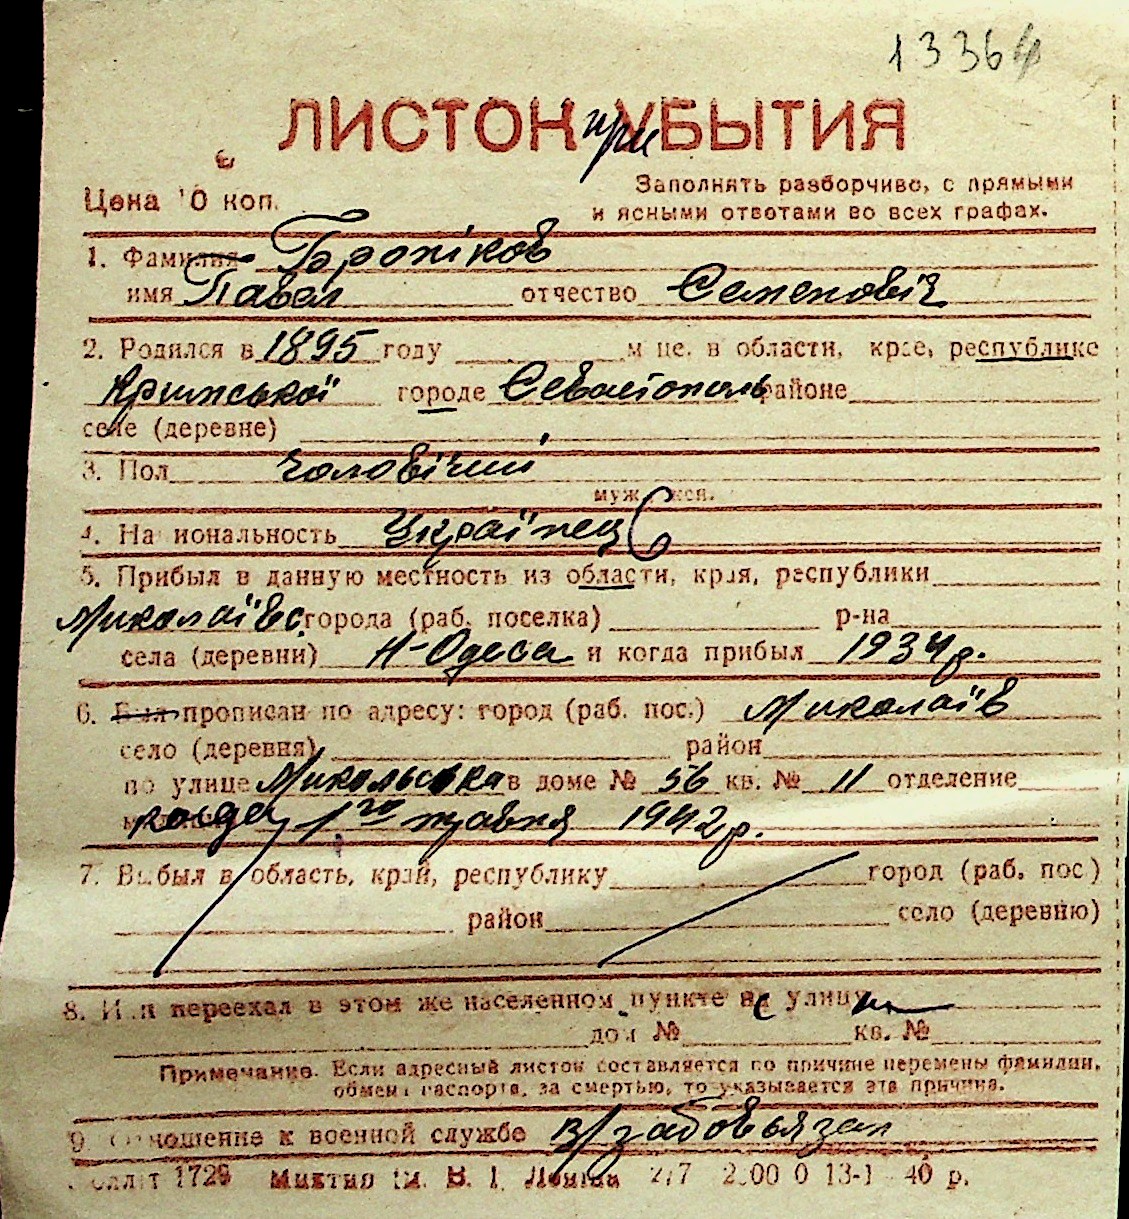 13364
ЛИСТОК при УБЫТИЯ
Цена 10 коп.
Заполнять разборчиво, с прямыми
и ясными ответами во всех графах.
1. Фамилия Броніков
имя Павел отчество Семенович
2. Родился в 1895 году м-це, в области, крае, республике
Кримської городе Севастополь районе
селе (деревне)
3. Пол чоловічий
муж. жен.
4. Национальность Українец
5. Прибыл в данную местность из области, края, республики
Миколаївс. города (раб. поселка) р-на
села (деревни) Н-Одеса и когда прибыл 1934 р.
6. Был прописан по адресу: город (раб. пос.) Миколаїв
село (деревня) район
по улице Микольська в доме № 56 кв. № 11 отделение
1го травня 1942 р.
7. Выбыл в область, край, республику город (раб. пос)
район село (деревню)
8. Или переехал в этом же населенном пункте на улицу
дом № кв. №
Примечание. Если адресный листок составляется по причине перемены фамилии,
обмена паспорта, за смертью, то указывается эта причина.
9. Отношение к военной службе в/забовьязан
1729 В. І. Леніна 13-1 40 р.